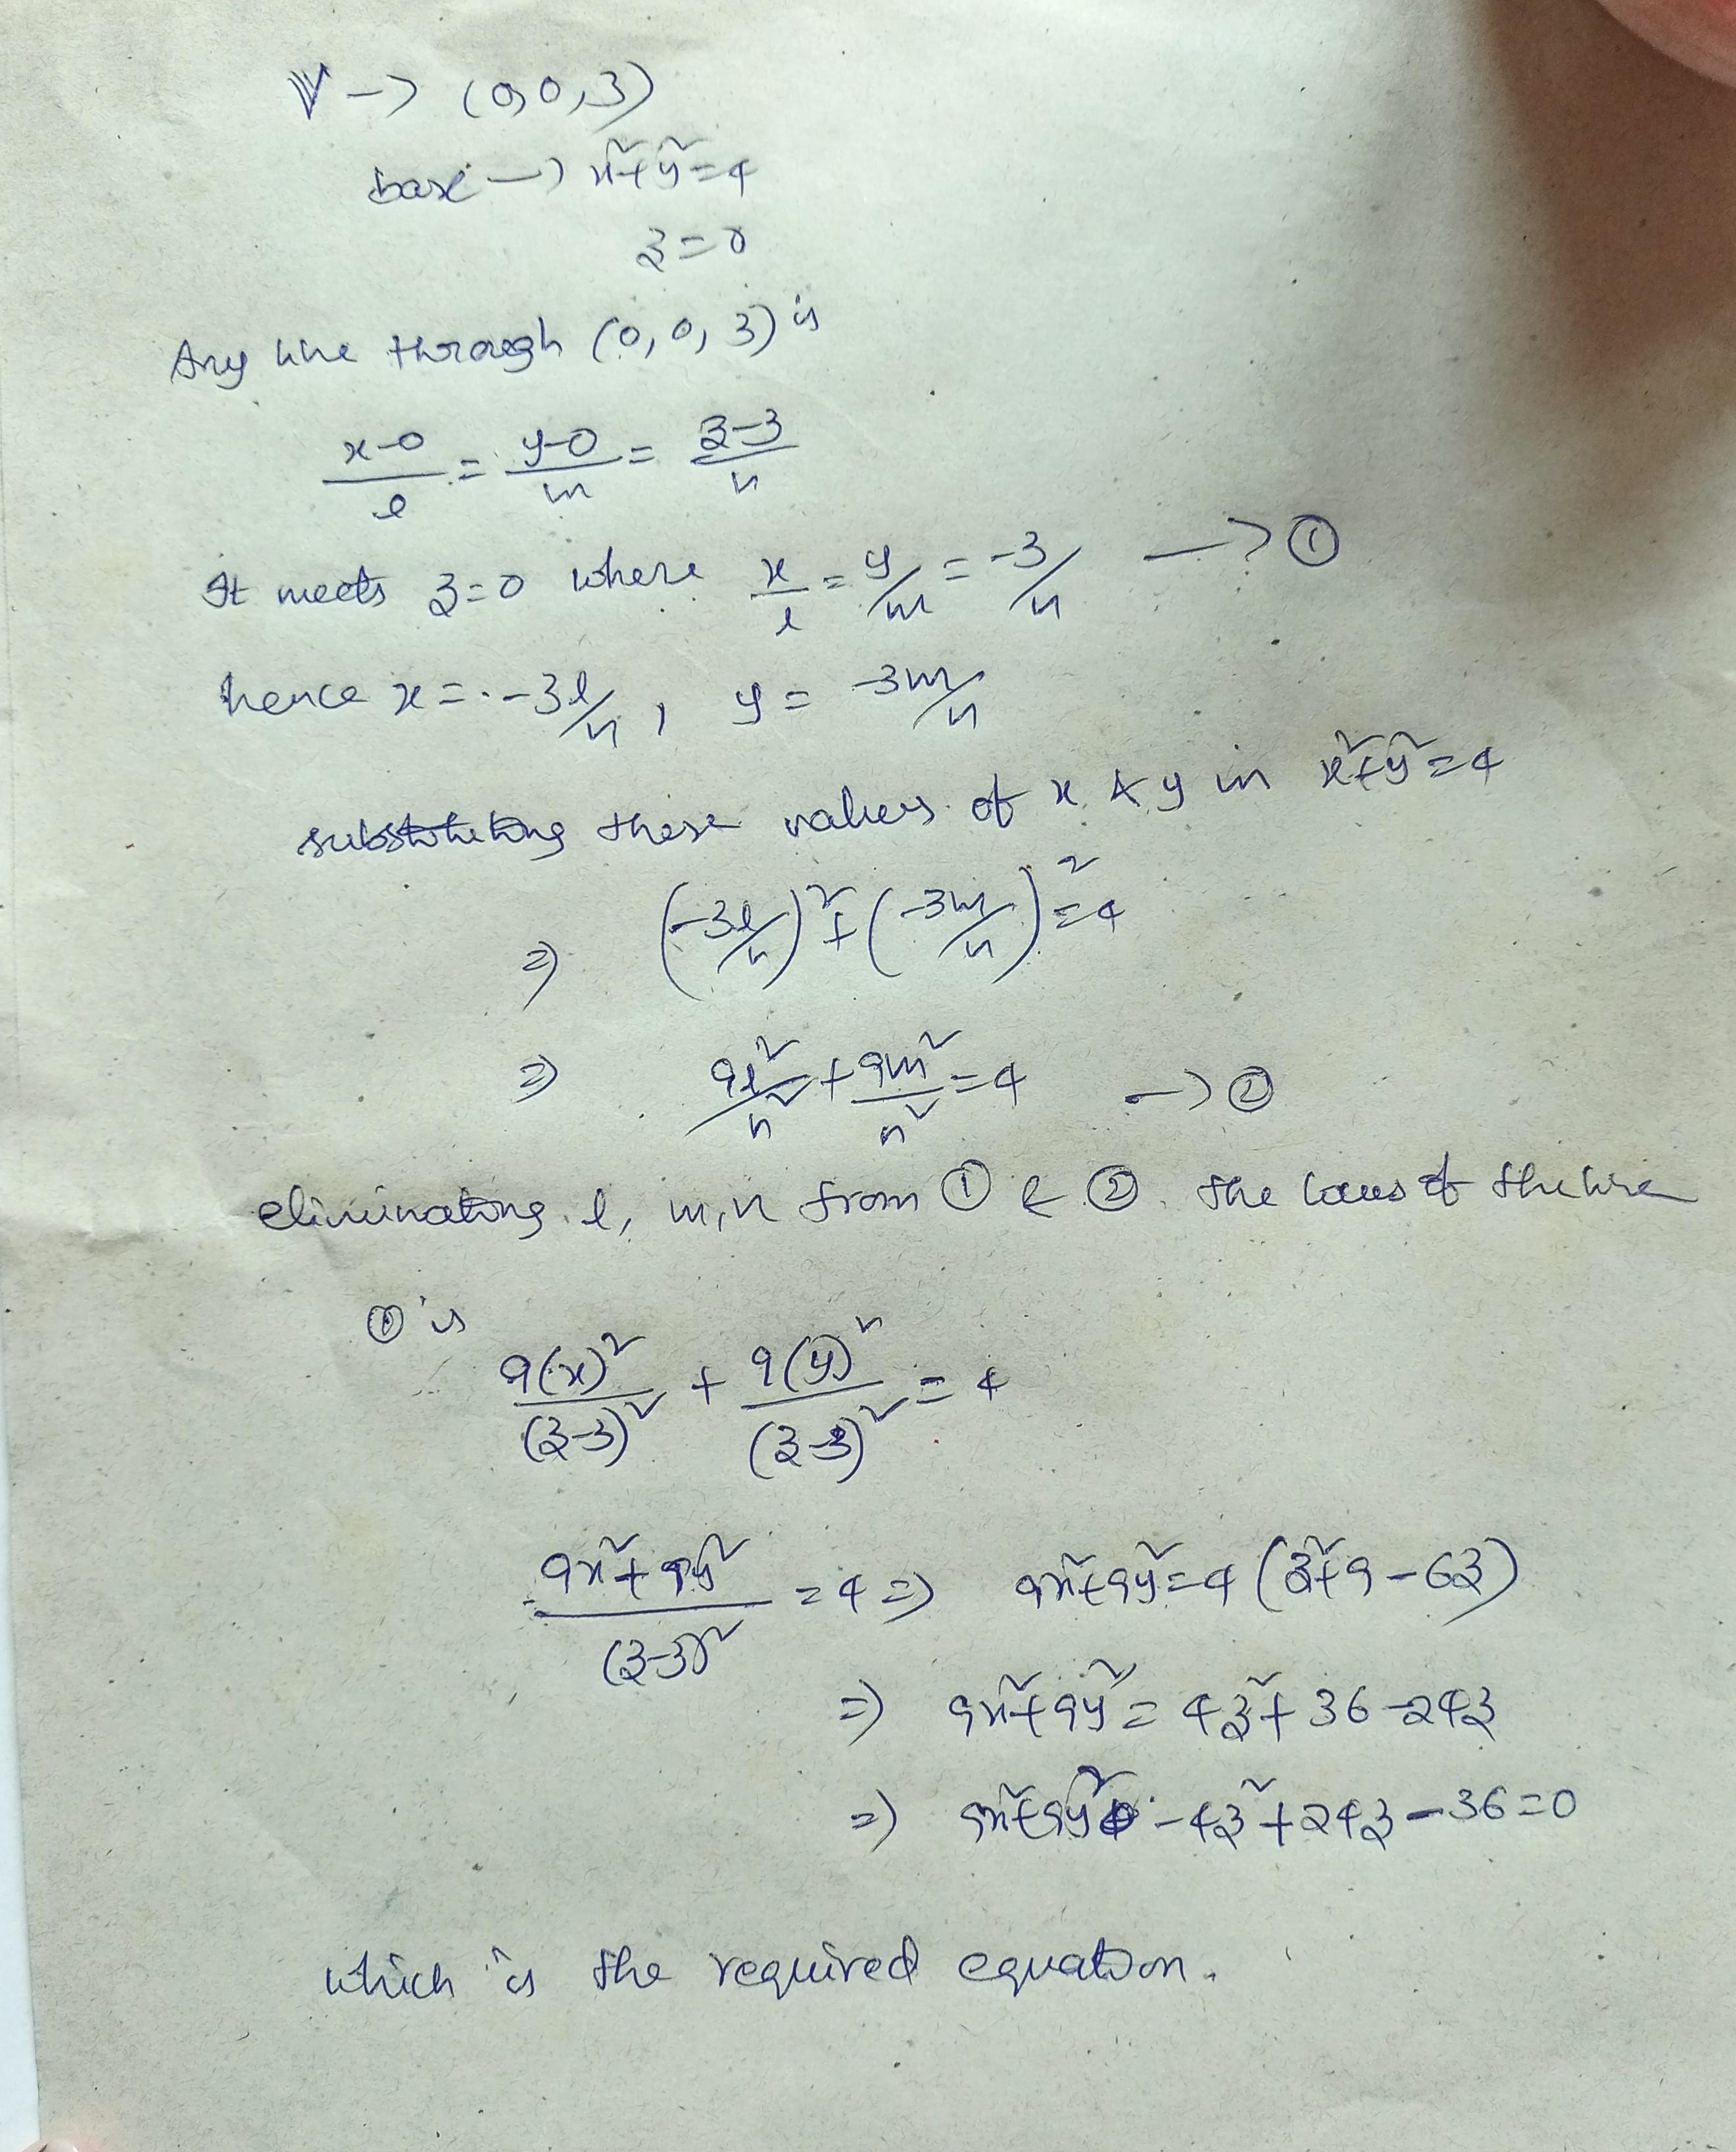 V -> (0,0,3)
base -> x²+y²=4
z=0
Any line through (0, 0, 3) is
x-0/l = y-0/m = z-3/n
It meets z=0 where x/l = y/m = -3/n -> ①
hence x = -3l/n, y = -3m/n
substituting these values of x & y in x²+y²=4
=> (-3l/n)² + (-3m/n)² = 4
=> 9l²/n² + 9m²/n² = 4 -> ②
eliminating l, m, n from ① & ② the locus of the line
① is
9(x)²/(z-3)² + 9(y)²/(z-3)² = 4
9x²+9y²/(z-3)² = 4 => 9x²+9y²=4(z²+9-6z)
=> 9x²+9y² = 4z²+36-24z
=> 9x²+9y²-4z²+24z-36=0
which is the required equation.